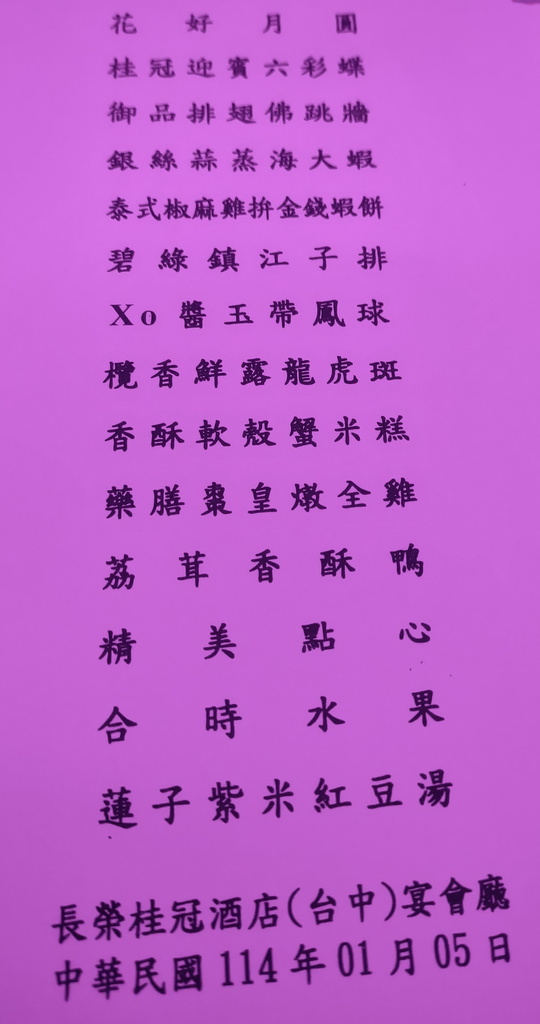 花好月圓
桂冠迎賓六彩蝶
御品排翅佛跳牆
銀絲蒜蒸海大蝦
泰式椒麻雞拚金錢蝦餅
碧綠鎮江子排
Xo醬玉帶鳳球
欖香鮮露龍虎斑
香酥軟殼蟹米糕
藥膳棗皇燉全雞
荔茸香酥鴨
精美點心
合時水果
蓮子紫米紅豆湯
長榮桂冠酒店(台中)宴會廳
中華民國 114 年 01 月 05 日